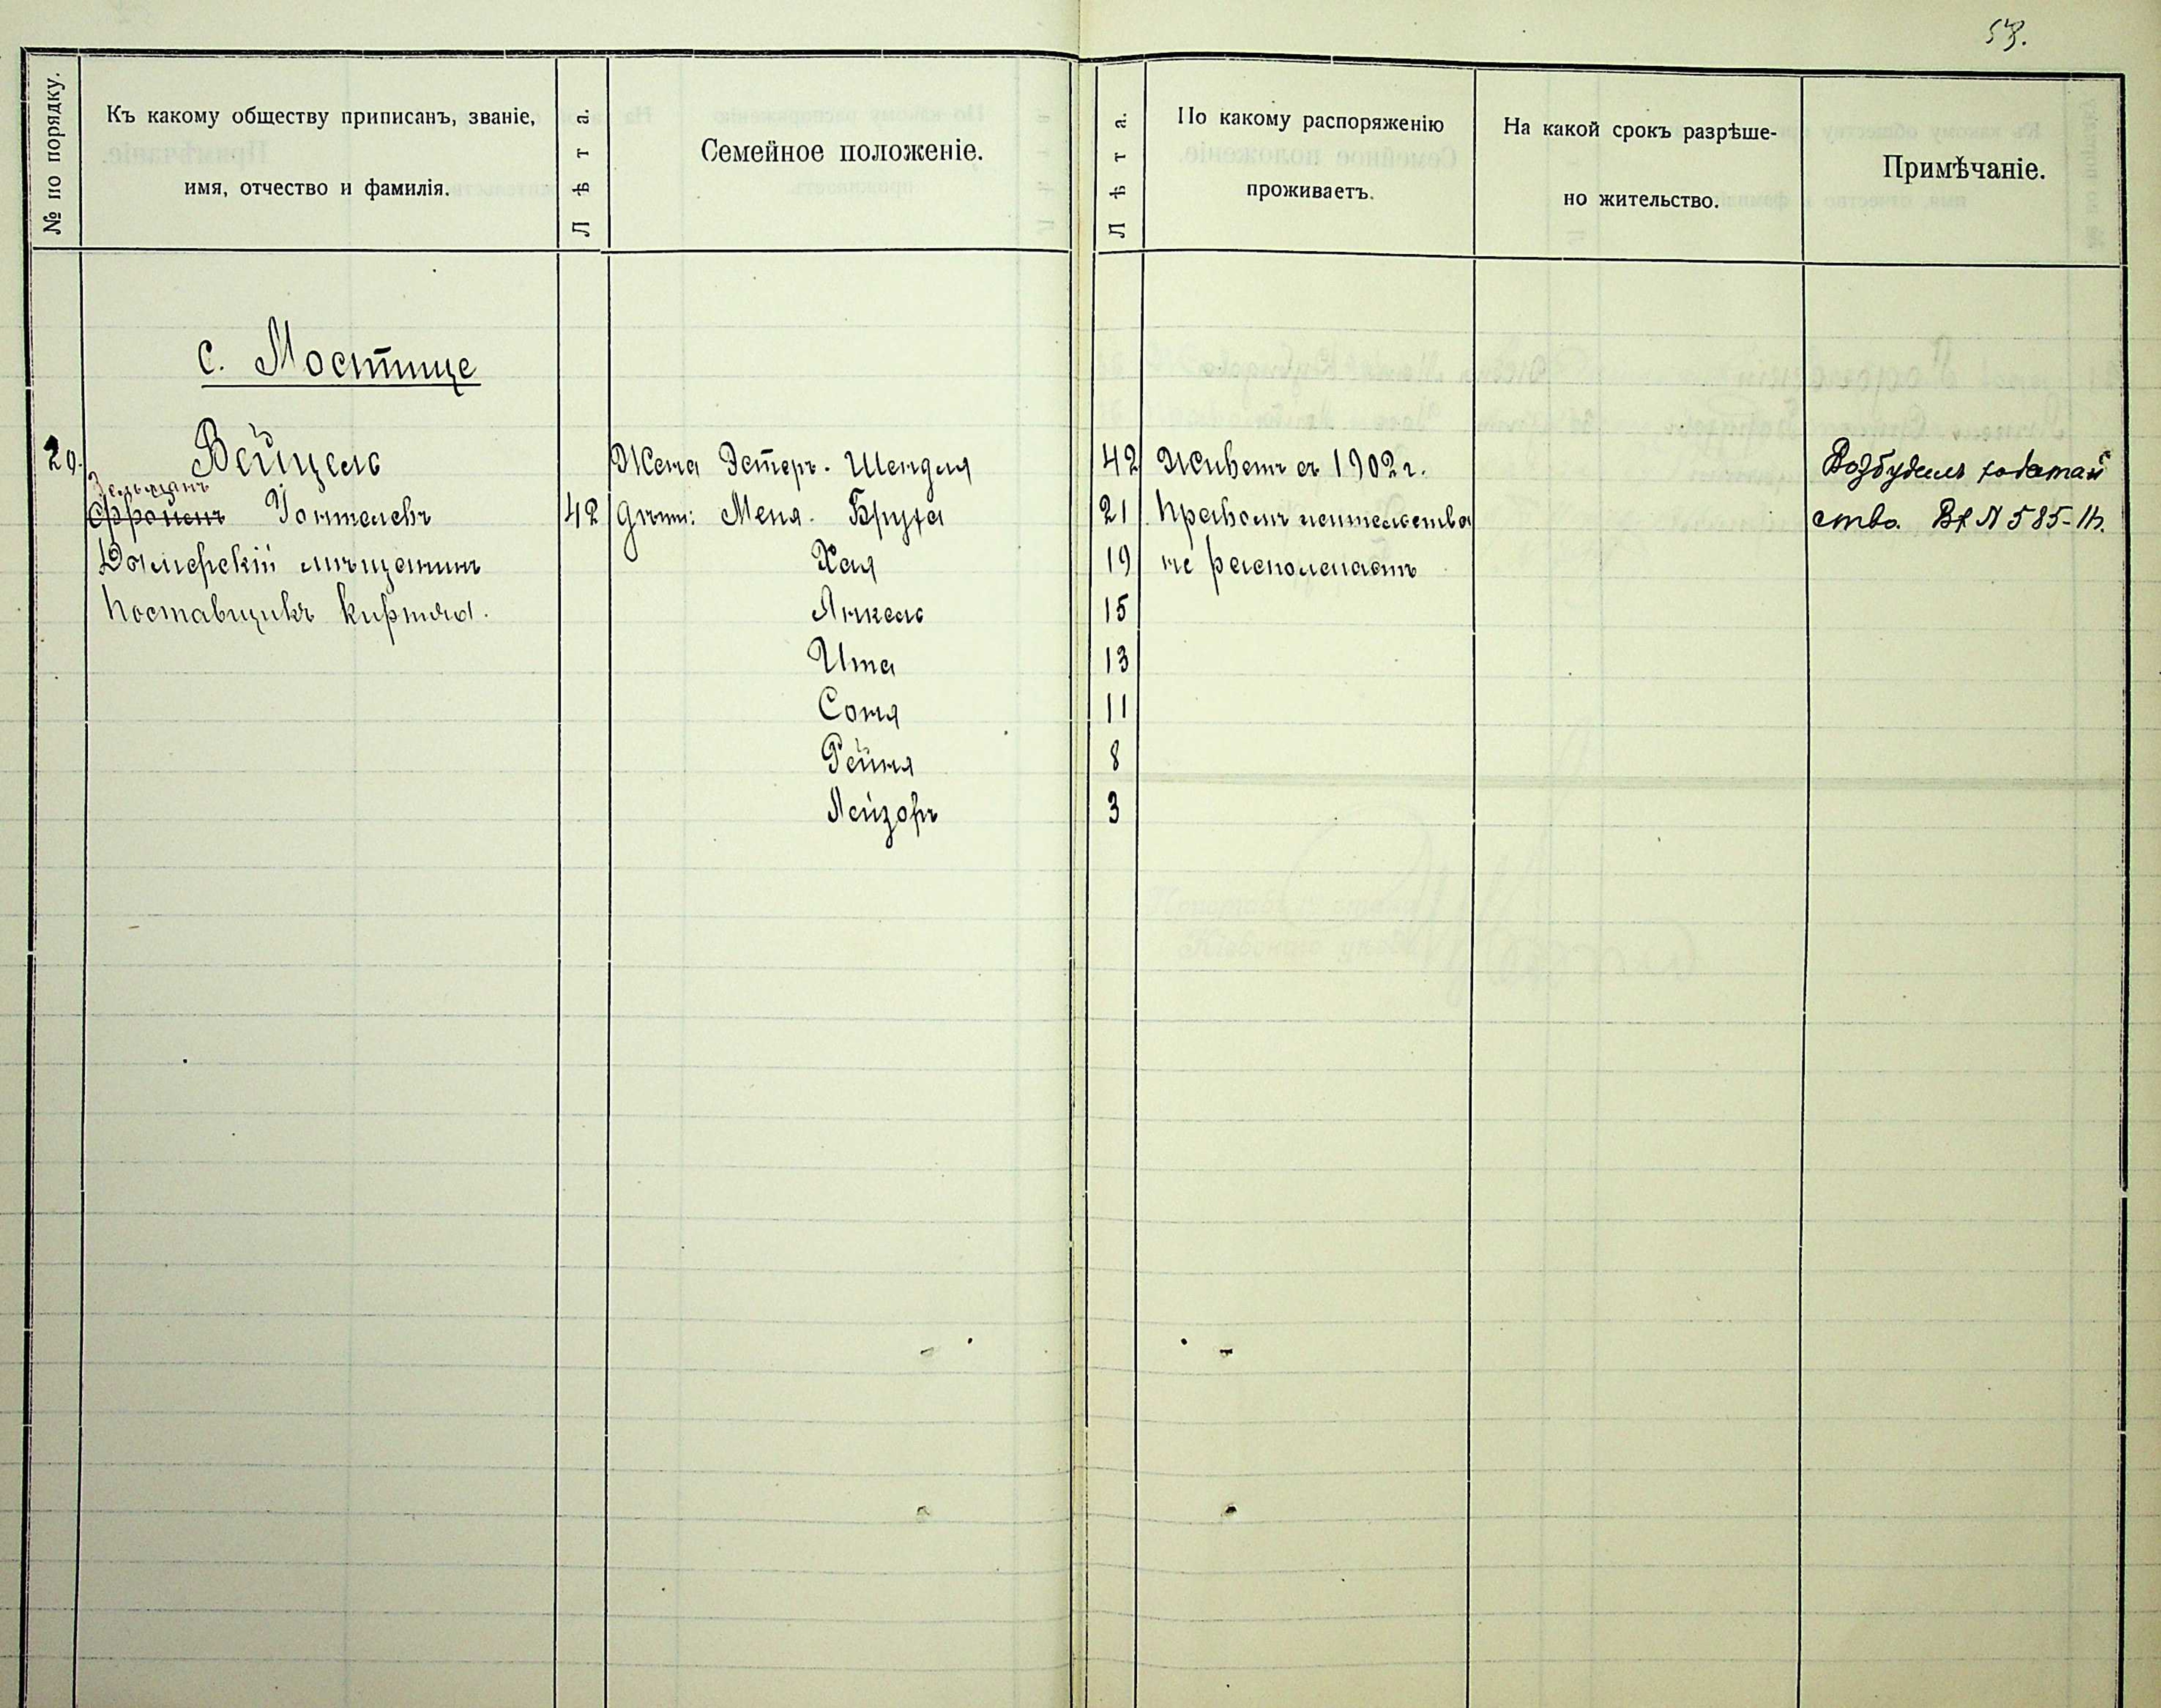 53.
№ по порядку.
Къ какому обществу приписанъ, званіе,
имя, отчество и фамилія.
Лѣта.
Семейное положеніе.
Лѣта.
По какому распоряженію
проживаетъ.
На какой срокъ разрѣше-
но жительство.
Примѣчаніе.
с. Мостище
20. Вейцель
Зельманъ
Іонтелевъ 42
Дымерскій мѣщанинъ
Поставщикъ кирпича.
Жена Эстеръ-Шендля 42
Дѣти: Меня-Бруха 21
Хая 19
Янкель 15
Ита 13
Соня 11
Рейня 8
Лейзоръ 3
Живетъ съ 1902 г.
Правомъ жительства
не располагаетъ
Возбудилъ ходатай
ство. Вх № 585-